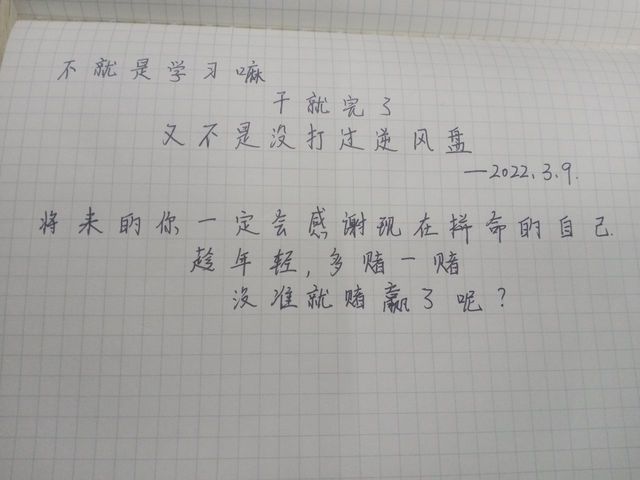 不就是学习嘛
干就完了
又不是没打过逆风盘
—2022.3.9.
将来的你一定会感谢现在拼命的自己.
趁年轻,多赌一赌
没准就赌赢了呢?